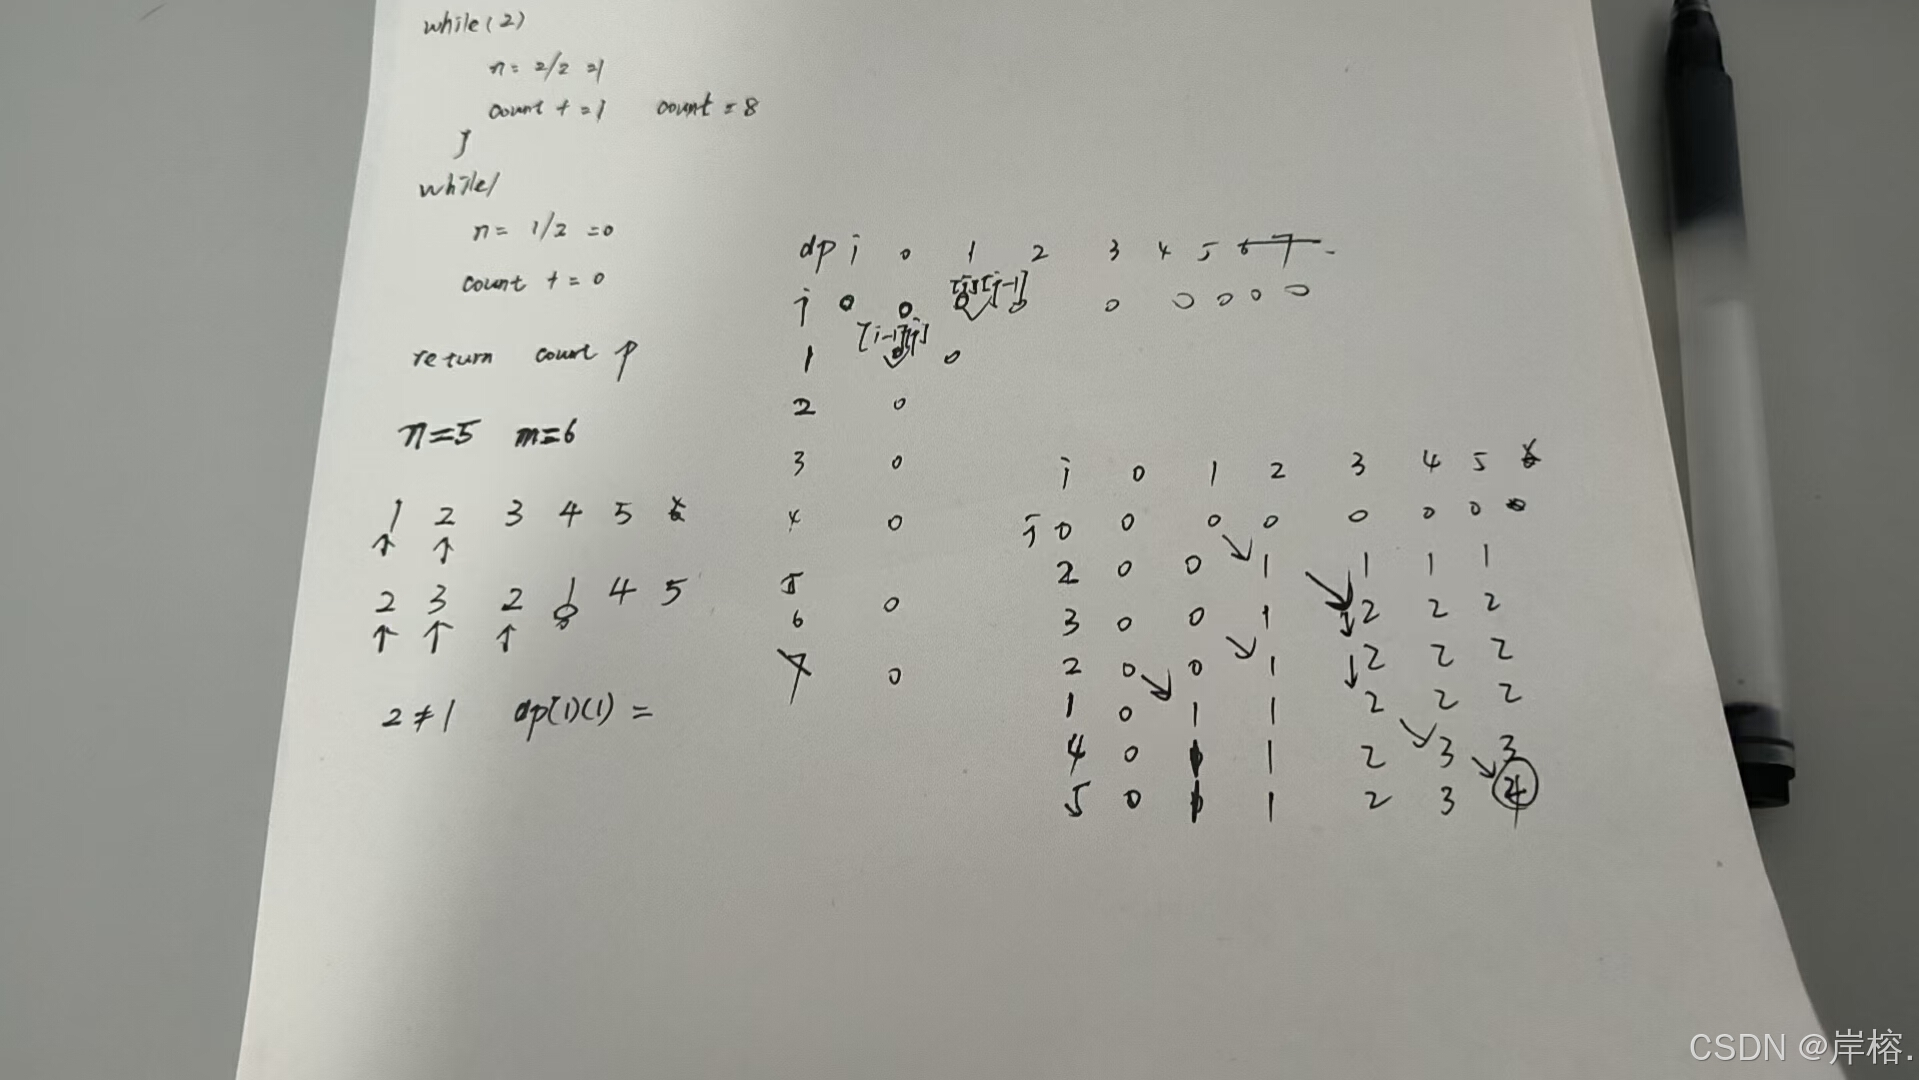 while(2)
n = 2/2 =1
count + =1 count = 8
}
while1
n = 1/2 =0
count + = 0
return count
n=5 m=6
1 2 3 4 5
2 3 2 1 4 5
2≠1 dp[1][1] =
dp i 0 1 2 3 4 5 6 7
[i][j-1]
j 0 0 0 0 0 0 0 0 0
[i-1][j]
1 0 0
2 0
3 0
4 0
5
6 0
7 0
i 0 1 2 3 4 5
j 0 0 0 0 0 0 0
2 0 0 1 1 1 1
3 0 0 1 2 2 2
2 0 0 1 2 2 2
1 0 1 1 2 2 2
4 0 1 1 2 3 3
5 0 1 1 2 3 4
CSDN @岸榕.